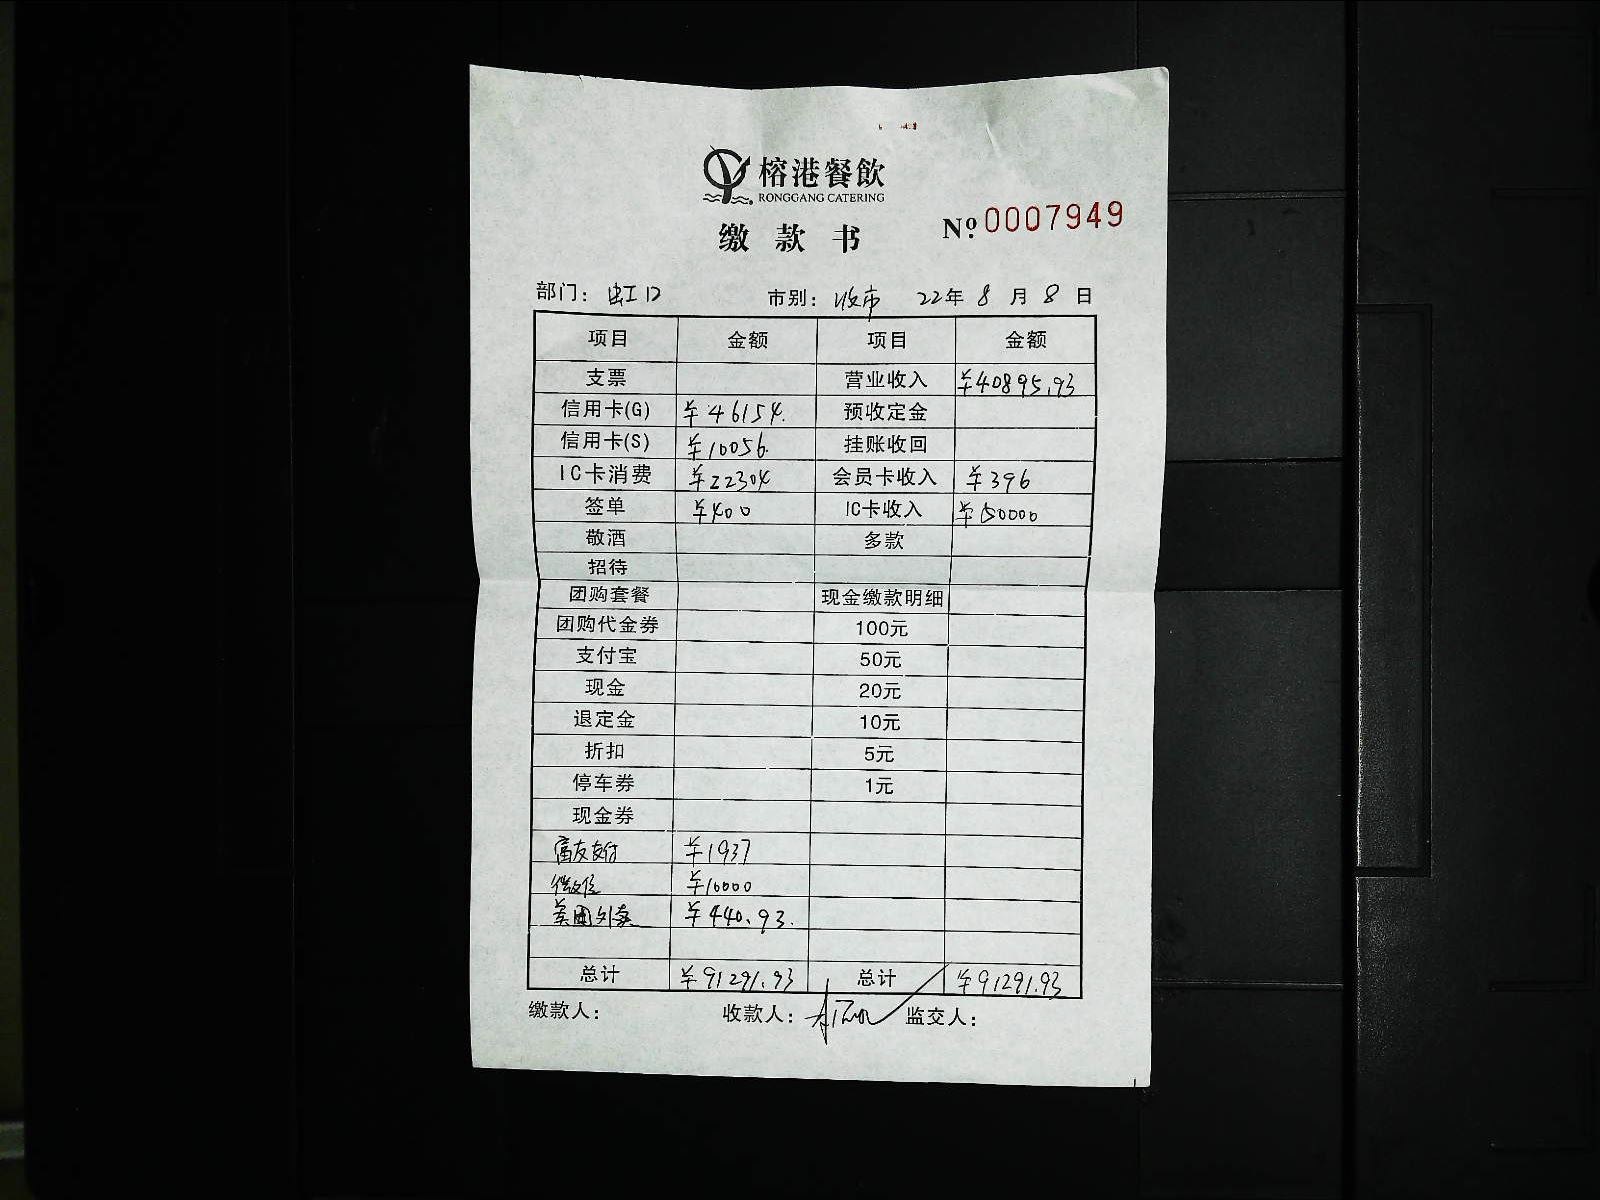 榕港餐飲
RONGGANG CATERING
缴款书 Nº 0007949
部门：虹口 市别：收市 22年8月8日
项目 金额 项目 金额
支票 营业收入 ¥40895.93
信用卡(G) ¥46154. 预收定金
信用卡(S) ¥10056. 挂账收回
IC卡消费 ¥22304 会员卡收入 ¥396
签单 ¥400 IC卡收入 ¥50000
敬酒 多款
招待
团购套餐 现金缴款明细
团购代金券 100元
支付宝 50元
现金 20元
退定金 10元
折扣 5元
停车券 1元
现金券
富友支付 ¥1937
微信 ¥10000
美团外卖 ¥440.93.
总计 ¥91291.93 总计 ¥91291.93
缴款人： 收款人： 监交人：